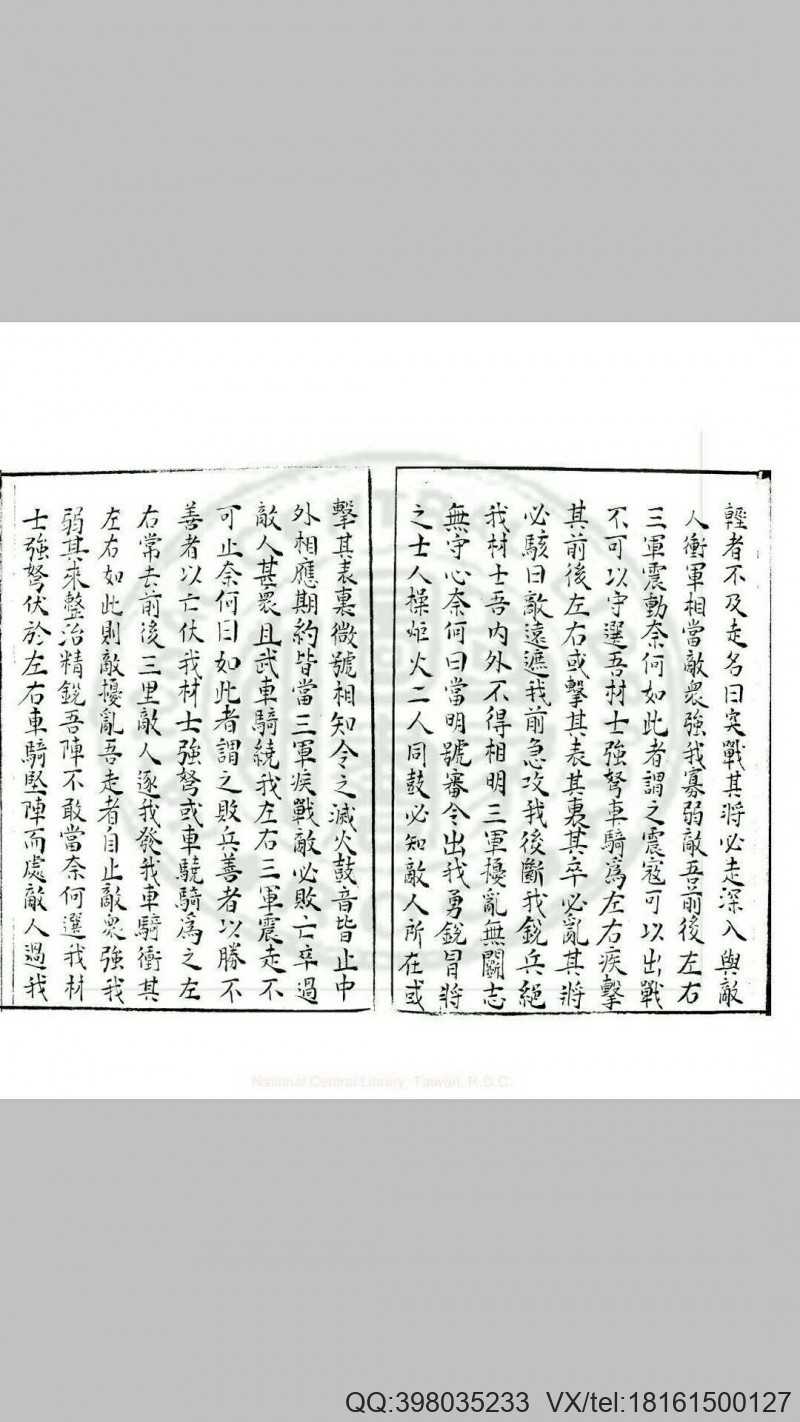 輕者不及走名曰突戰其將必走深入與敵
人衝軍相當敵衆強我寡弱敵吾前後左右
三軍震動奈何如此者謂之震寇可以出戰
不可以守選吾材士強弩車騎爲左右疾擊
其前後左右或擊其表其裏其卒必亂其將
必駭曰敵遠遮我前急攻我後斷我銳兵絕
我材士吾內外不得相明三軍擾亂無鬭志
無守心奈何曰當明號審令出我勇銳冒將
之士人操炬火二人同鼓必知敵人所在或
擊其表裏微號相知令之滅火鼓音皆止中
外相應期約皆當三軍疾戰敵必敗亡卒過
敵人甚衆且武車騎繞我左右三軍震走不
可止奈何曰如此者謂之敗兵善者以勝不
善者以亡伏我材士強弩或車驍騎爲之左
右常去前後三里敵人逐我發我車騎衝其
左右如此則敵擾亂吾走者自止敵衆強我
弱其來整治精銳吾陣不敢當奈何選我材
士強弩伏於左右車騎堅陣而處敵人過我
National Central Library, Taiwan, R.O.C.
QQ:398035233 VX/tel:18161500127